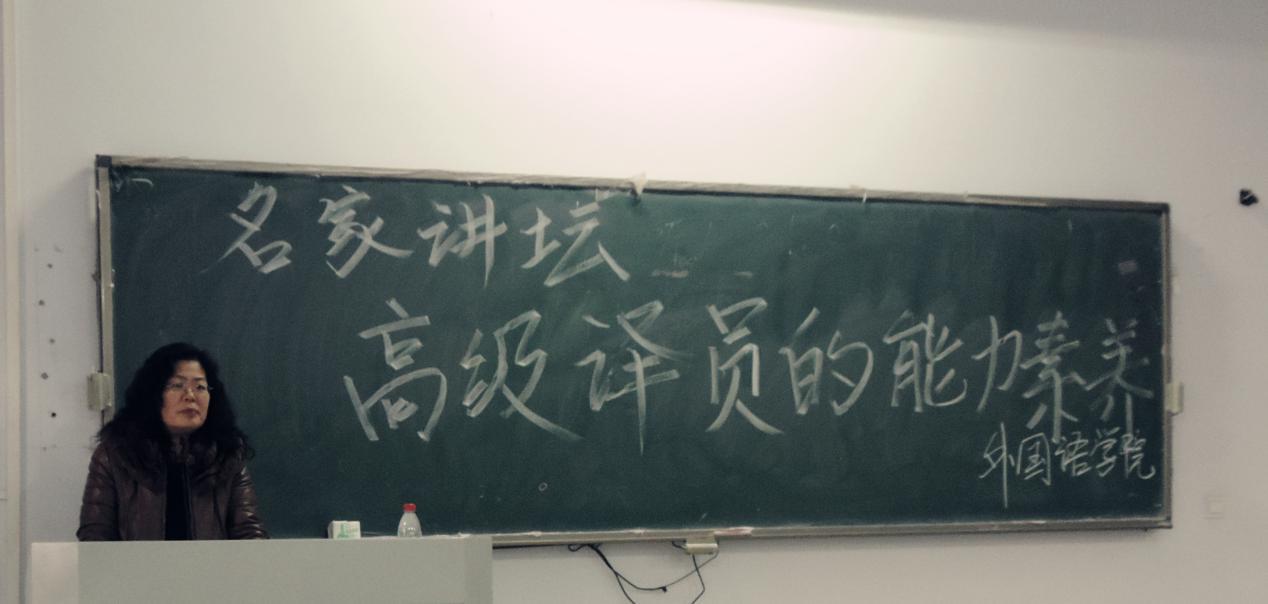 名家讲坛
高级译员的能力素养
外国语学院